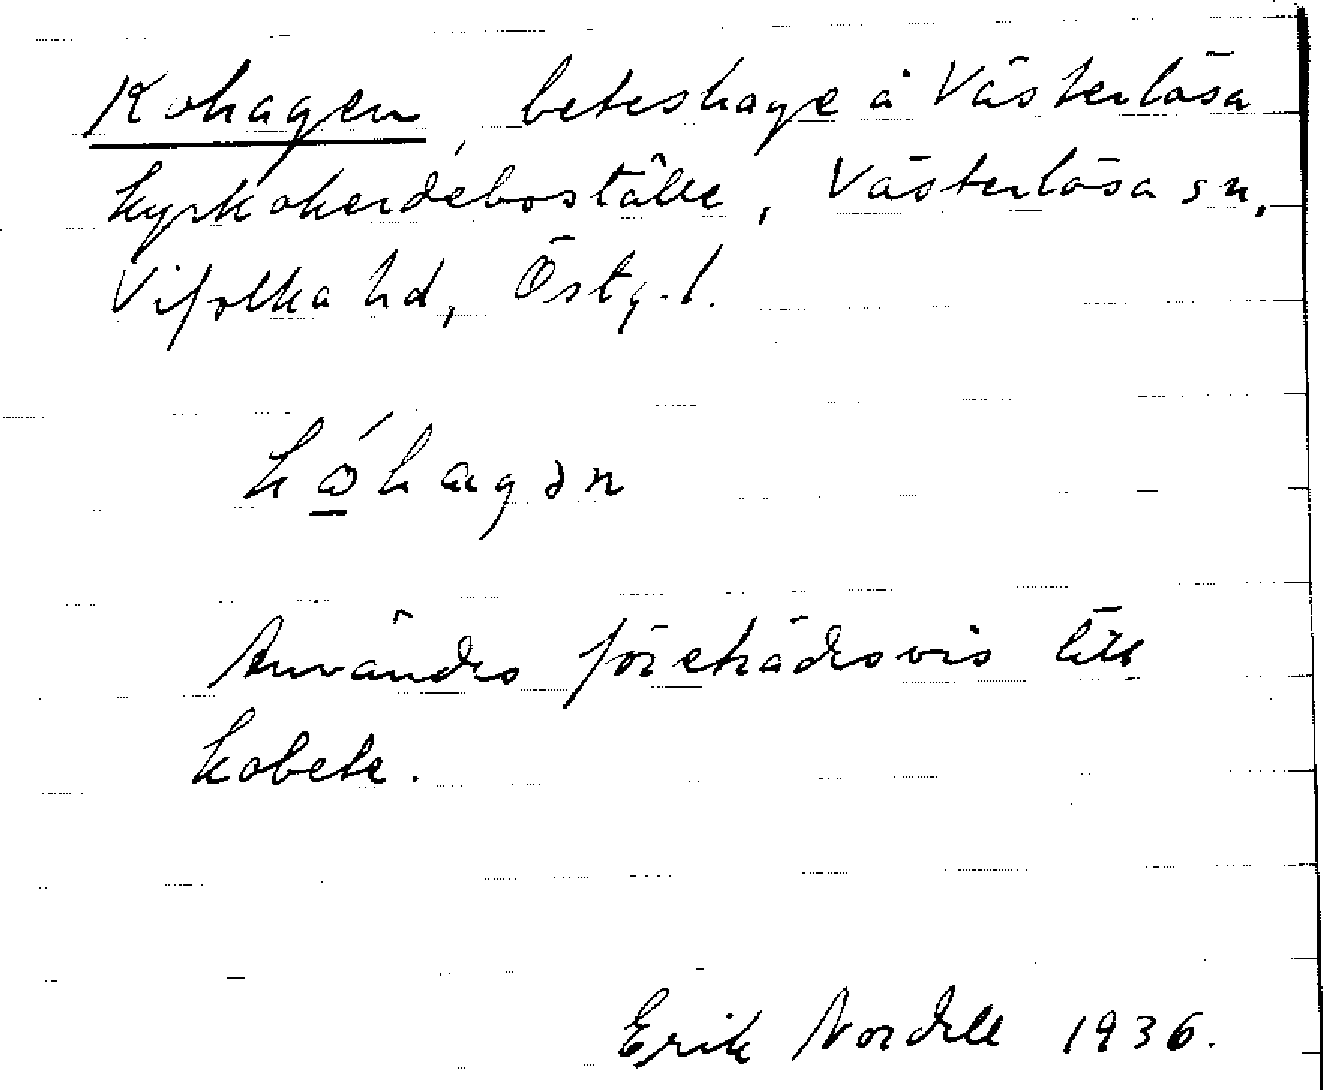 Kohagen, beteshage å Västerlösa
kyrkoherdeboställe, Västerlösa sn,
Vifolka hd, Östg. l.
kώ̲hagən
Användes företrädesvis till
kobete.
Erik Nordell 1936.